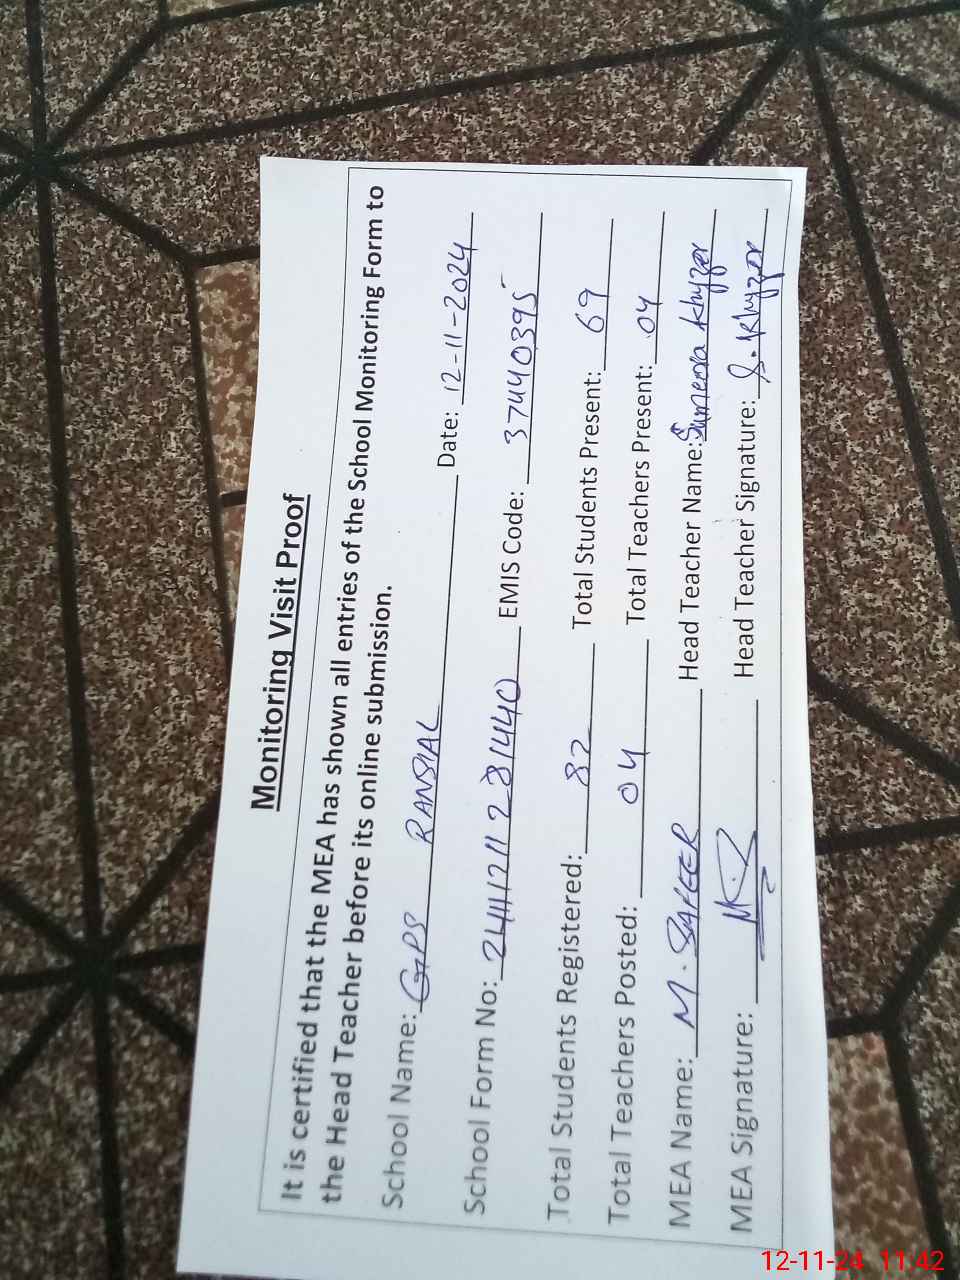 Monitoring Visit Proof
It is certified that the MEA has shown all entries of the School Monitoring Form to
the Head Teacher before its online submission.
School Name: GPS RANSIAL Date: 12-11-2024
School Form No: 24111211281440 EMIS Code: 37440395
Total Students Registered: 82 Total Students Present: 69
Total Teachers Posted: 04 Total Teachers Present: 04
MEA Name: M. SAFEER Head Teacher Name: Sumeera Khyzer
MEA Signature: Head Teacher Signature: S. Khyzer
12-11-24 11:42